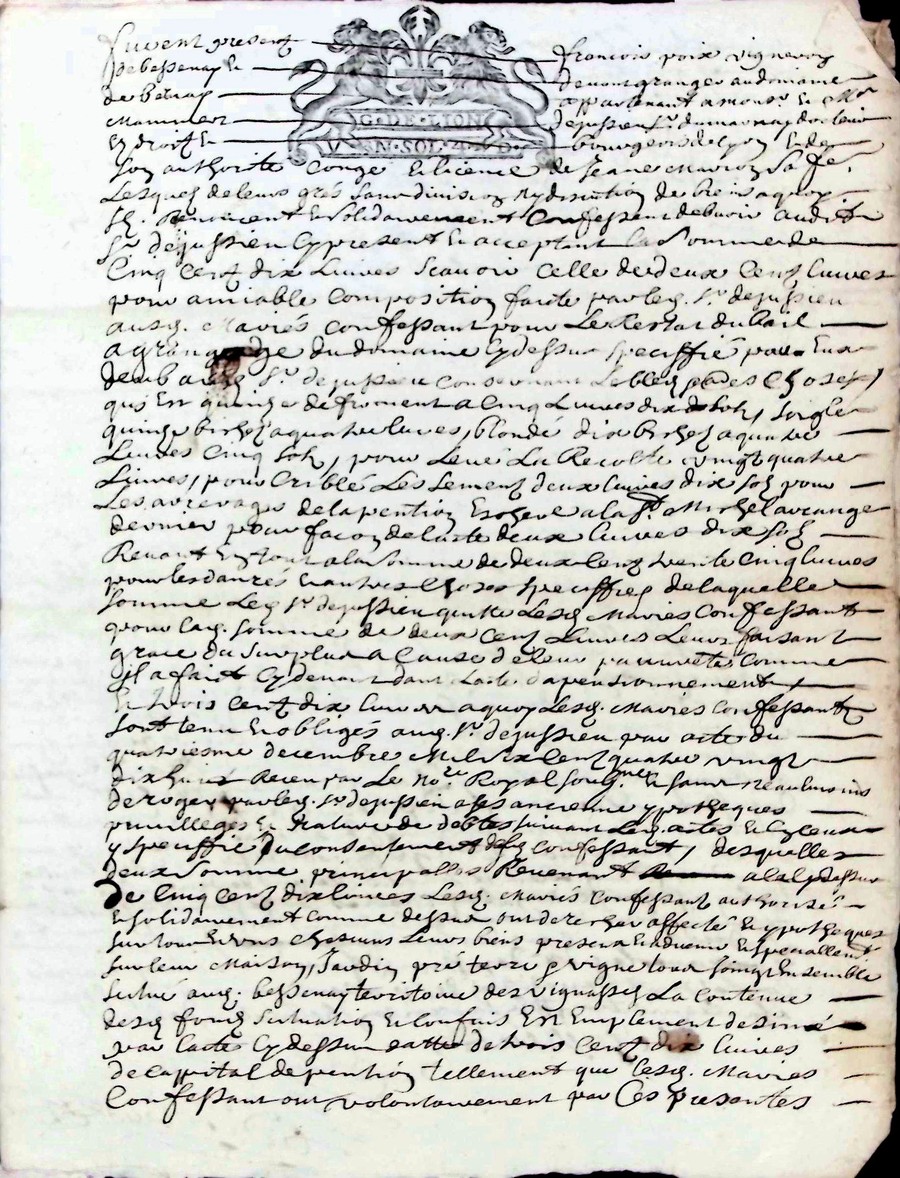 furent presents françois poix vigneron
de bessenay et devant granger au domaine
de appartenant a mons. et Mr
Mammer dejussieu Sr. dumarnay docteur
En droit Et bourgeois de Lyon Et de
son authorité Congé et licence de Jeane Marion Sa fe.
Lesquels de leurs grés sans division ny discution de biens a quoy
Ils Renoncent Et solidairement Confessent debvoir audit
Sr. dejussieu Cy present Et acceptant La Somme de
Cinq Cents dix Livres Scavoir Celle de deux Cents livres
pour amiable Composition faite par led. Sr. dejussieu
ausd. Mariés Confessant pour Le Restat du bail
a grangeage du domaine Cy dessus speciffié par Eux
deub aud. Sr. dejussieu Concernant Le bled des Choses
qui Est quinze de froment a Cinq Livres dix sols, soigle
quinze bichets a quatre livres, blondé dix bichets a quatre
Livres Cinq sols, pour Levé La Recolte vingt quatre
Livres, pour Criblé Les Sements deux livres dix sols pour
Les arrerages de la pention Escheue a la St. Michel archange
dernier pour façon de l'acte deux livres dix sols
Revant En tout a la somme de deux Cents trente Cinq livres
pour les danrés Et autres Choses specifiés de laquelle
somme Led. Sr. dejussieu quitte Lesd. Mariés Confessant
pour lad. somme de deux Cents Livres Leurs faisant
grace du Surplus a Cause de leur pauvreté Comme
Il a fait Cy devant dans L'acte d'apensionnement
Et trois Cents dix livres a quoy Lesd. Mariés Confessants
sont tenu Et obligés aud. Sr. dejussieu par acte du
quatriesme decembre Mil six Cents quatre vingt
dix huit Receu par Le Nore. Royal soubsigné Et sans neaulmoins
deroger par led. Sr. dejussieu a ses anciennes ypotheques
privilleges Et Nature de debtes suivant Lesd. actes Et Ceux
y specifié du Consentement desd. Confessant, desquelles
deux Somme principalles Revenant a la Cy dessus
De Cinq Cents dix livres Lesd. Mariés Confessant authorisé
Et solidairement Comme dessus ont derechef affecté Et ypotheques
sur tous Et uns chescuns Leurs biens presens Et advenir Et speciallement
sur leur Maison, Jardin, pré terre & vigne tous joingt Ensemble
scitué aud. bessenay territoire des vignasses La Contenue
desd. fonds scituation Et Confins Est Emplement designé
par L'acte Cy dessus datté de trois Cents dix livres
de Cappital de pention tellement que Lesd. Mariés
Confessant ont volontairement par Ces presentes
G·DE·LION